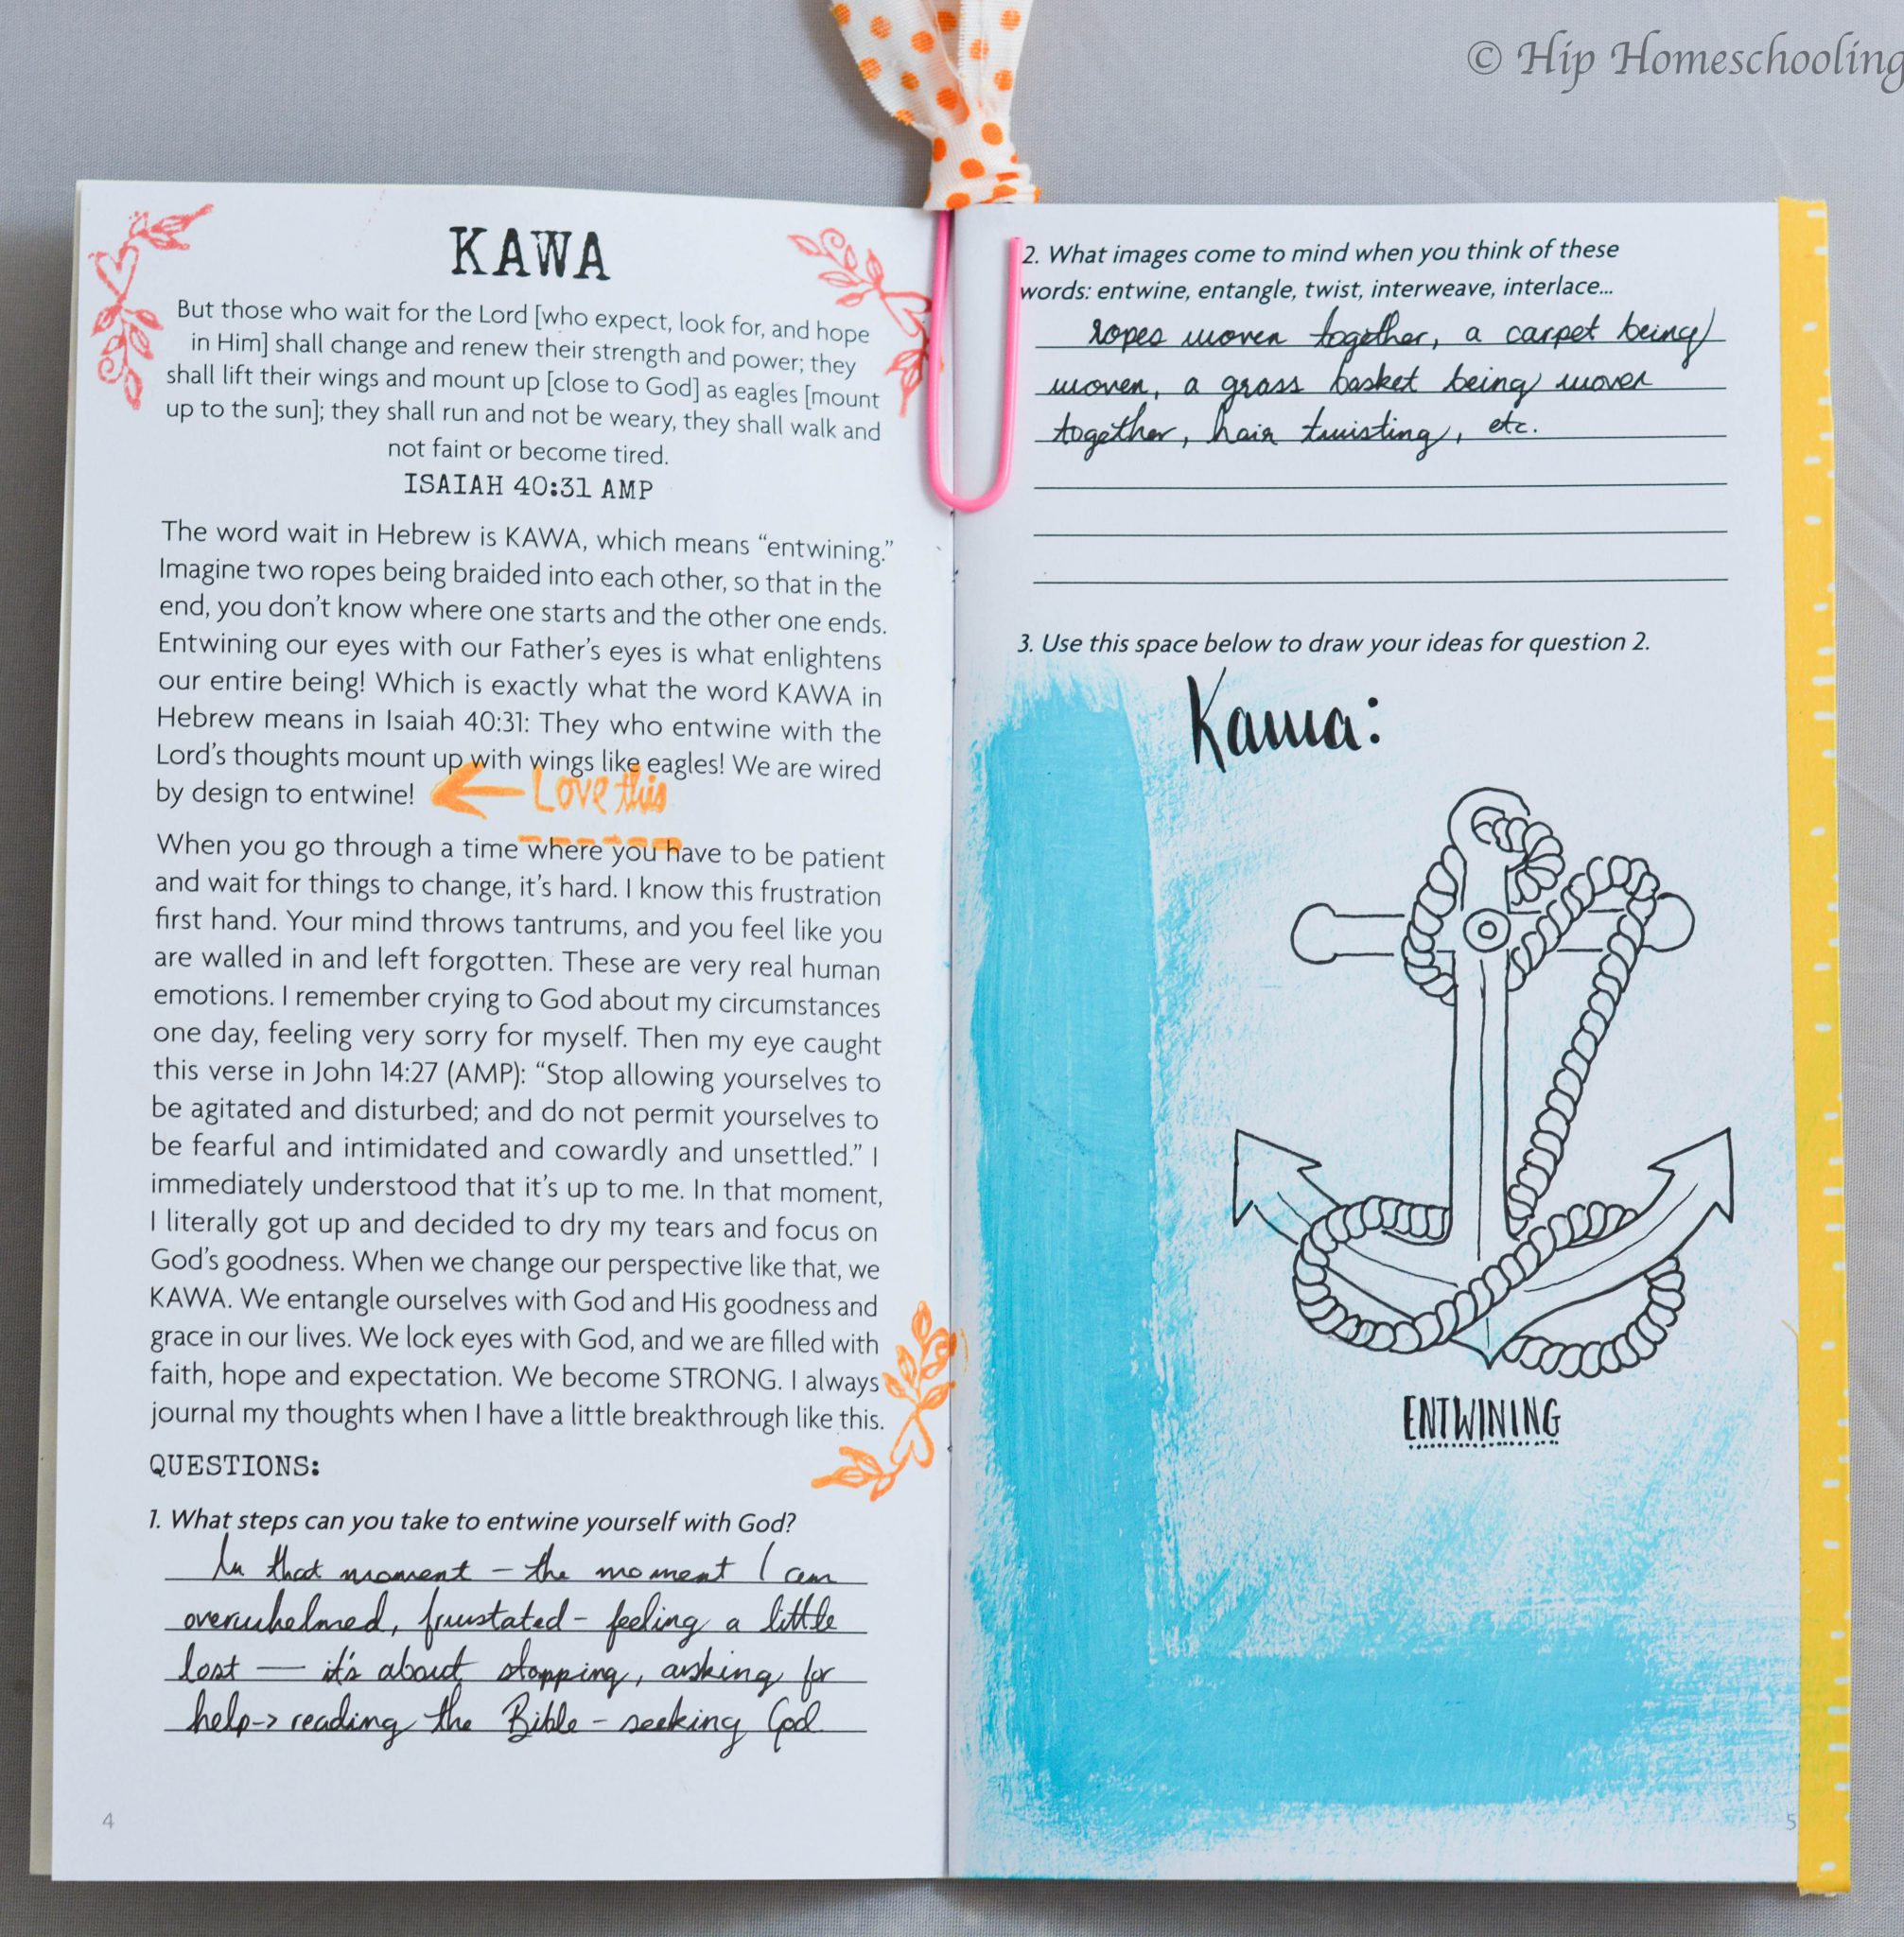 © Hip Homeschooling
KAWA
But those who wait for the Lord [who expect, look for, and hope
in Him] shall change and renew their strength and power; they
shall lift their wings and mount up [close to God] as eagles [mount
up to the sun]; they shall run and not be weary, they shall walk and
not faint or become tired.
ISAIAH 40:31 AMP
The word wait in Hebrew is KAWA, which means “entwining.”
Imagine two ropes being braided into each other, so that in the
end, you don’t know where one starts and the other one ends.
Entwining our eyes with our Father’s eyes is what enlightens
our entire being! Which is exactly what the word KAWA in
Hebrew means in Isaiah 40:31: They who entwine with the
Lord’s thoughts mount up with wings like eagles! We are wired
by design to entwine!
Love this
When you go through a time where you have to be patient
and wait for things to change, it’s hard. I know this frustration
first hand. Your mind throws tantrums, and you feel like you
are walled in and left forgotten. These are very real human
emotions. I remember crying to God about my circumstances
one day, feeling very sorry for myself. Then my eye caught
this verse in John 14:27 (AMP): “Stop allowing yourselves to
be agitated and disturbed; and do not permit yourselves to
be fearful and intimidated and cowardly and unsettled.” I
immediately understood that it’s up to me. In that moment,
I literally got up and decided to dry my tears and focus on
God’s goodness. When we change our perspective like that, we
KAWA. We entangle ourselves with God and His goodness and
grace in our lives. We lock eyes with God, and we are filled with
faith, hope and expectation. We become STRONG. I always
journal my thoughts when I have a little breakthrough like this.
QUESTIONS:
1. What steps can you take to entwine yourself with God?
In that moment – the moment I am
overwhelmed, frustated – feeling a little
lost — it's about stopping, asking for
help -> reading the Bible – seeking God
4
2. What images come to mind when you think of these
words: entwine, entangle, twist, interweave, interlace...
ropes woven together, a carpet being
woven, a grass basket being woven
together, hair twisting, etc.
3. Use this space below to draw your ideas for question 2.
Kawa:
ENTWINING
5